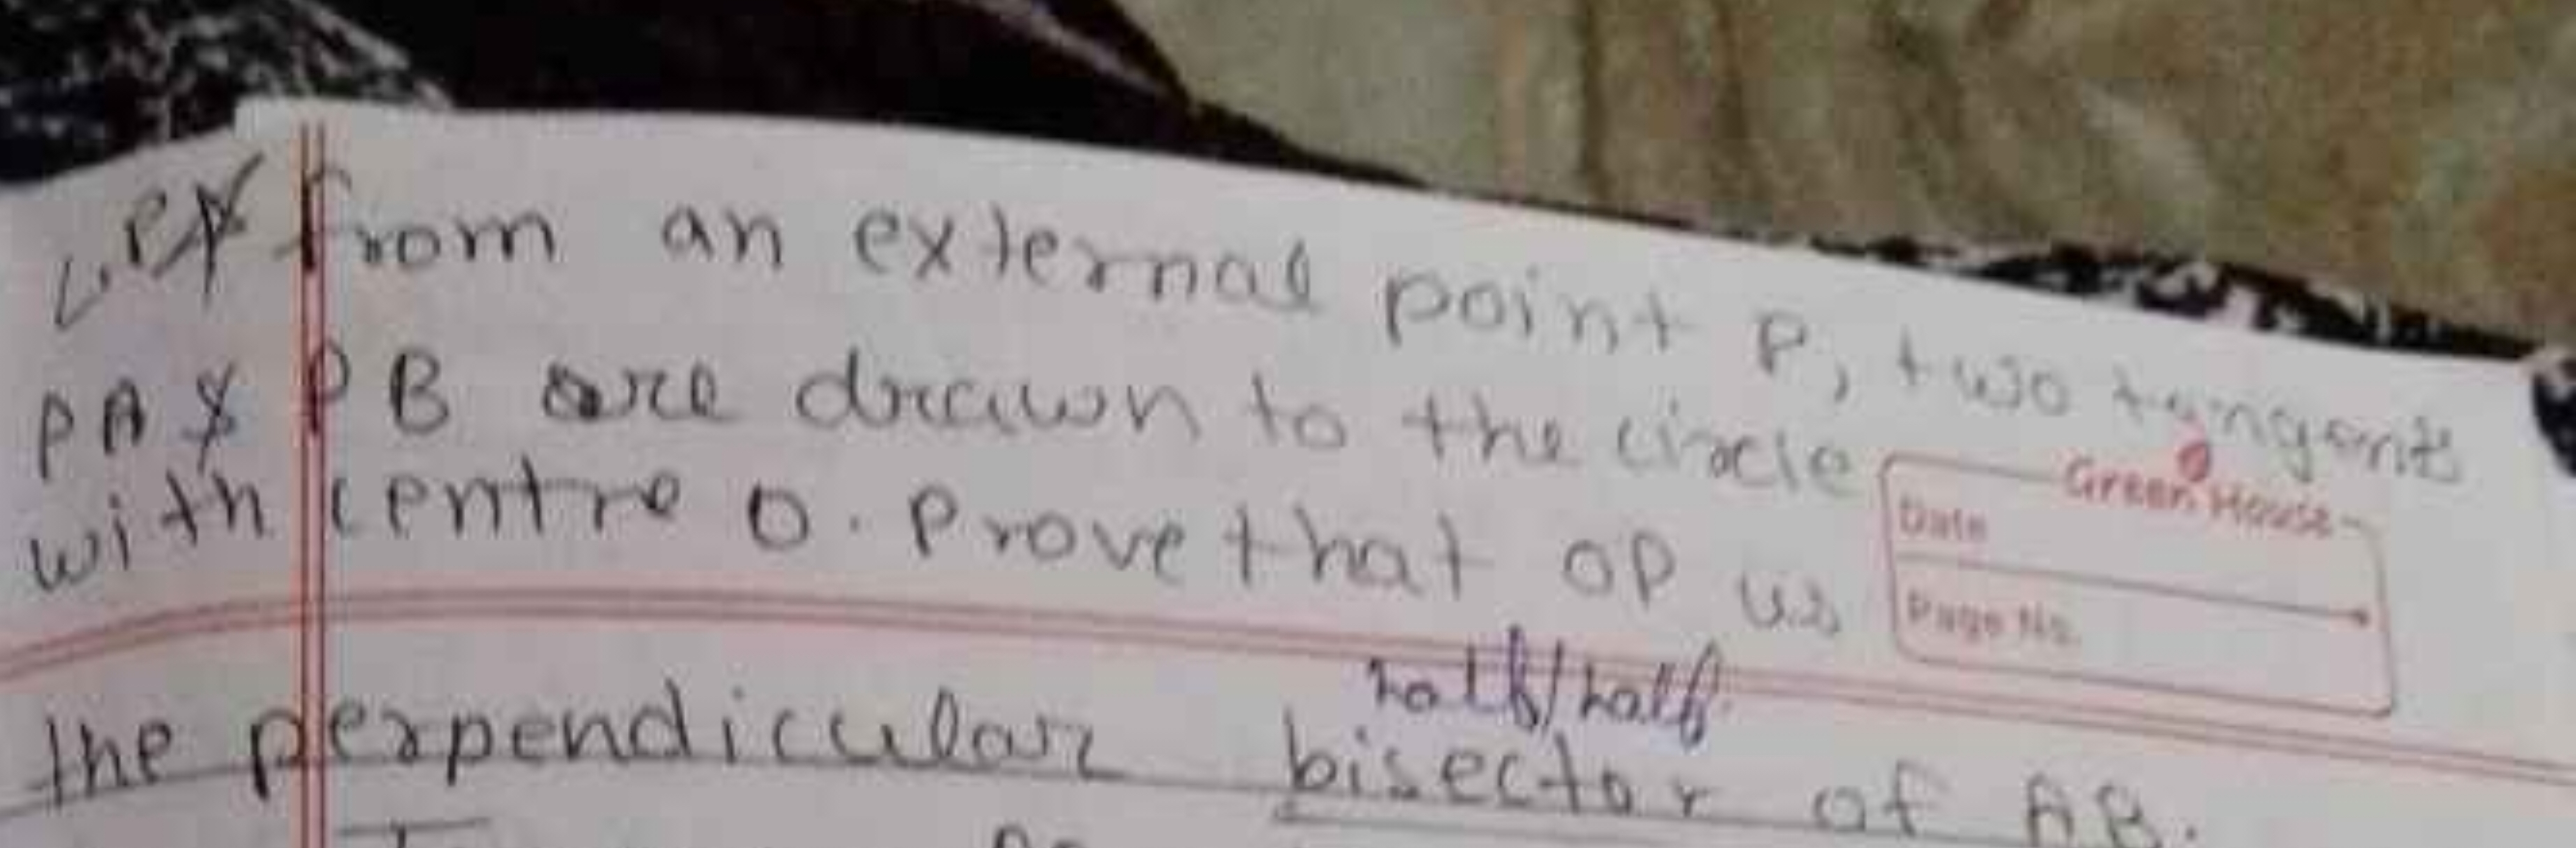 From an external point P, two tangents
PA & PB are drawn to the circle
Green House
with centre O. Prove that OP is
Date
Page No.
half/half
the perpendicular bisector of AB.